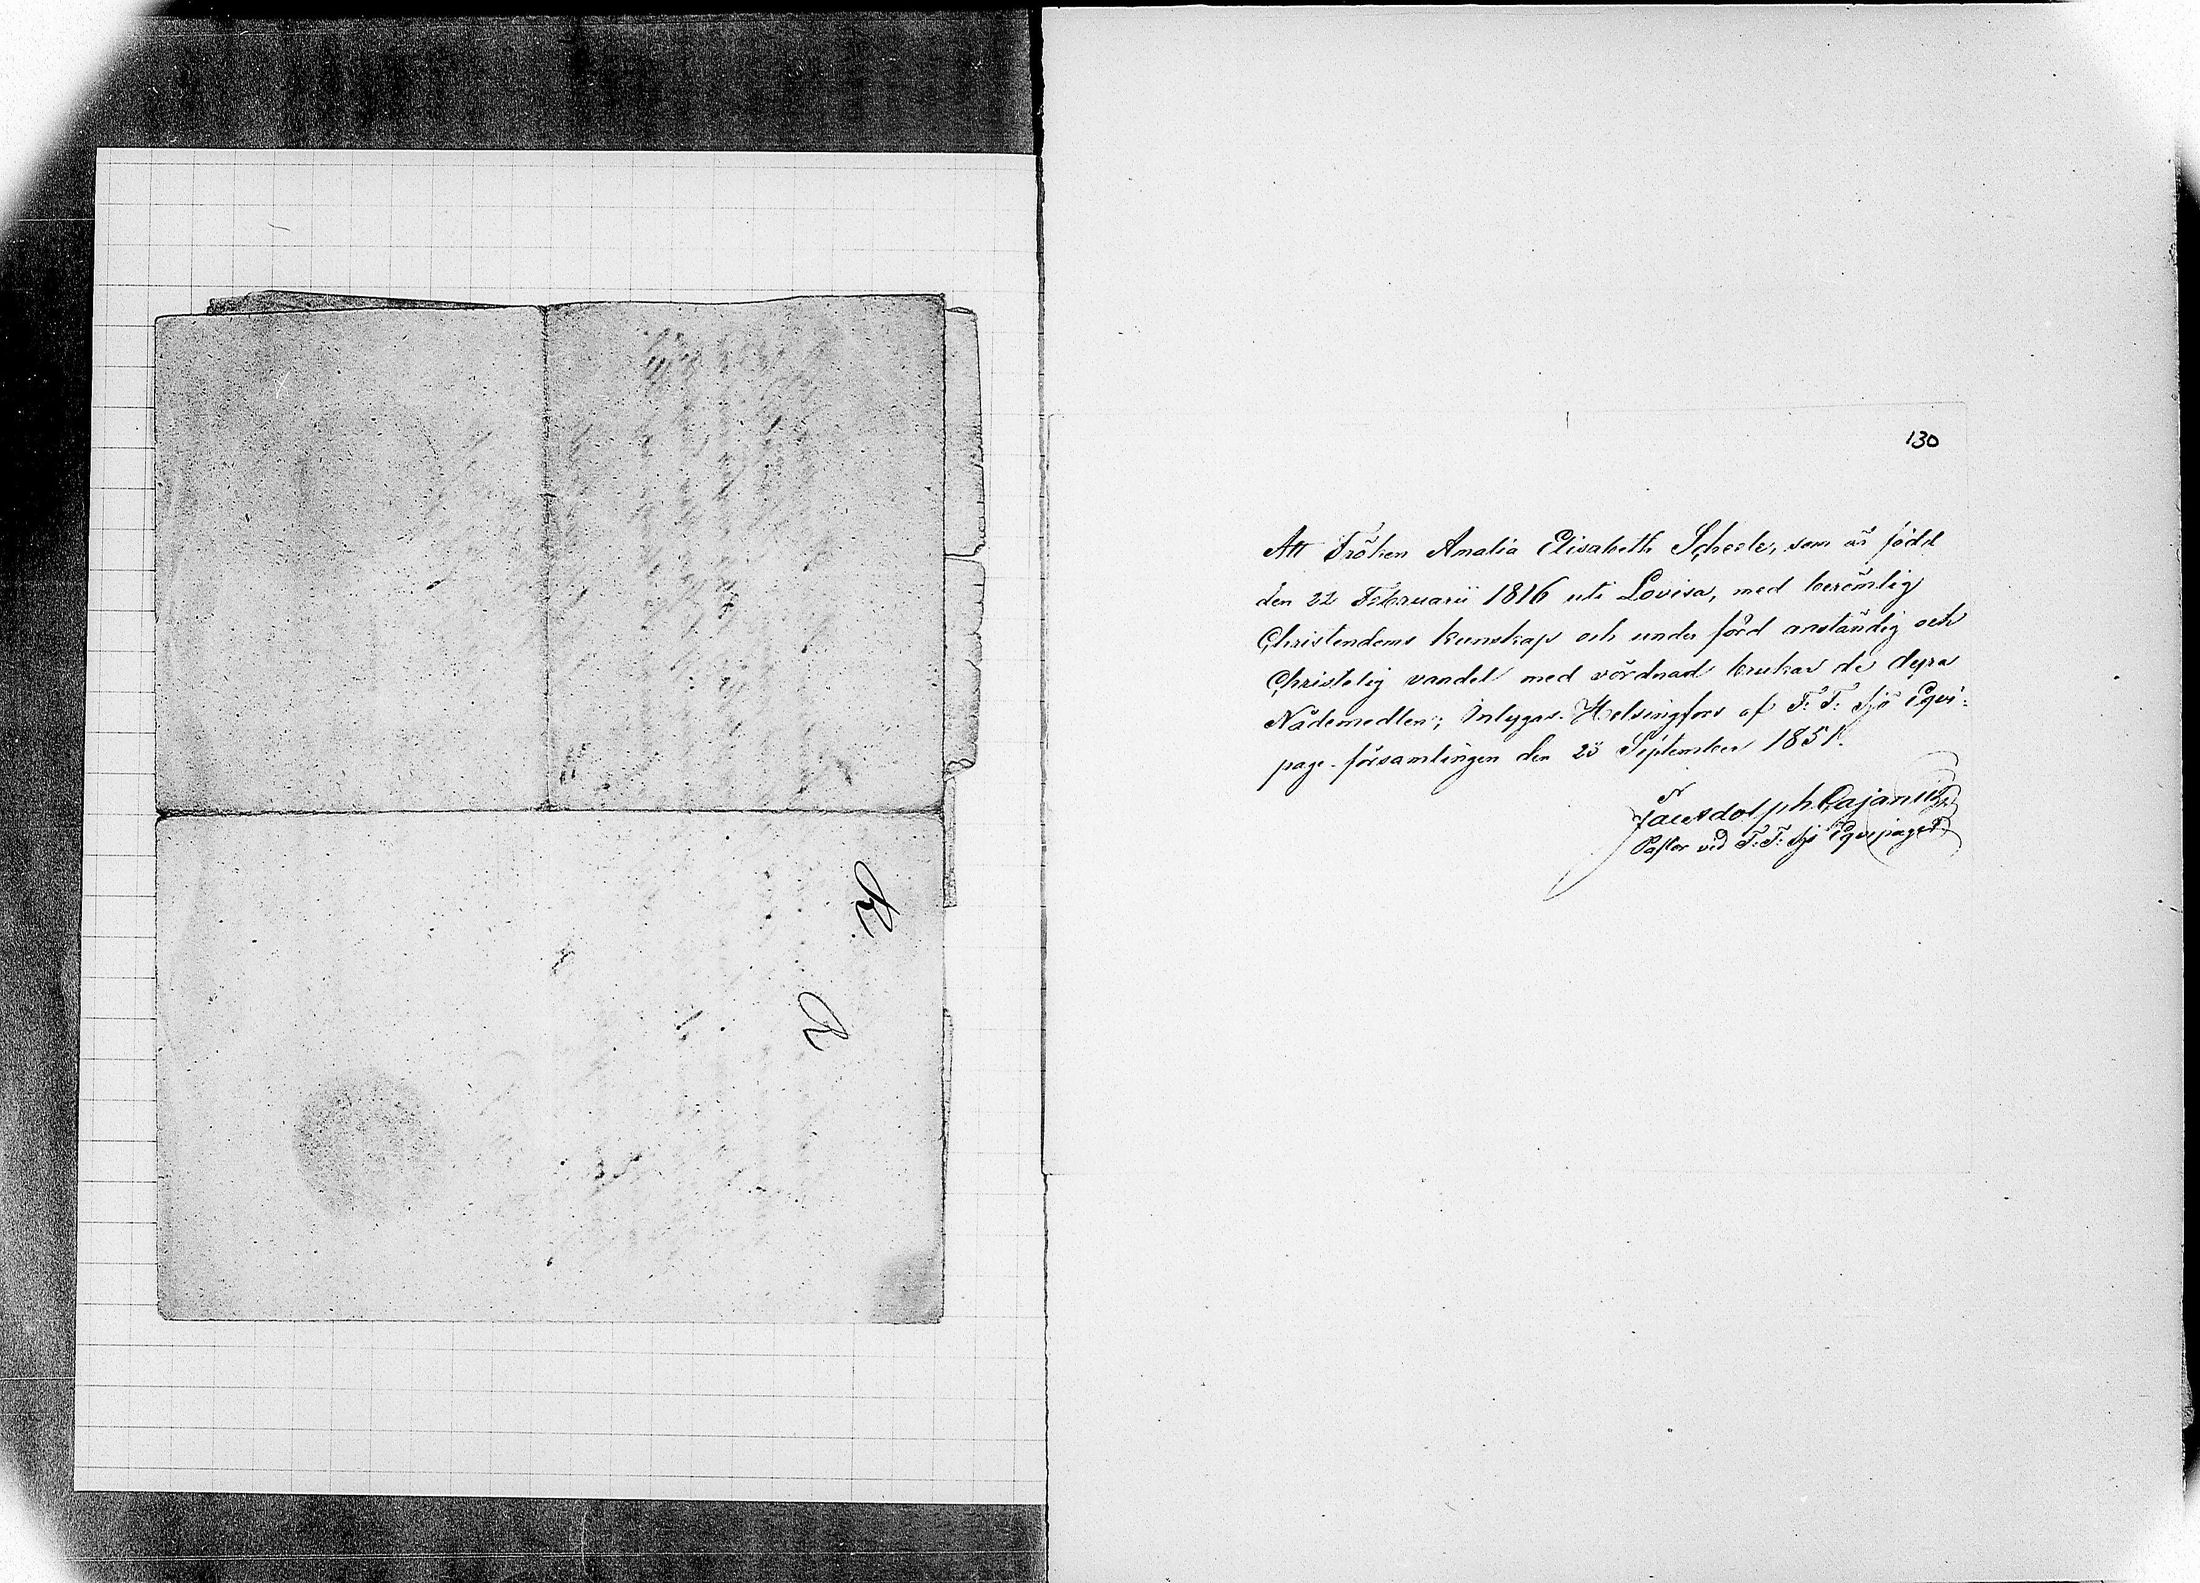 130
Att Fröken Amalia Elisabeth Scheele, som är född
den 22 Februarii 1816 uti Lovisa, med berömlig
Christendoms kunskap och under förd anständig och
Christelig vandel med vördnad brukar de dyra
Nådemedlen; intygas. Helsingfors af F: F: Sjö Eqvi=
page-församlingen den 23 September 1851.
Cajanus
Pastor ved F: F: Sjö Eqvipaget